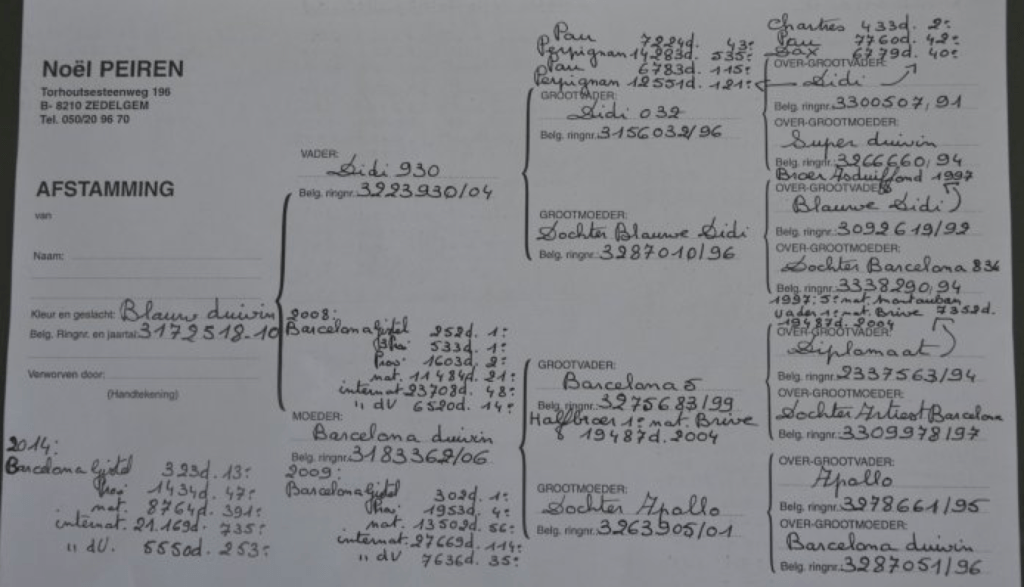 Noël PEIREN
Torhoutsesteenweg 196
B- 8210 ZEDELGEM
Tel. 050/20 96 70
AFSTAMMING
van
Naam:
Kleur en geslacht: Blauw duivin
Belg. Ringnr. en jaartal: 3172518-10
Verworven door:
(Handtekening)
2014:
Barcelona Gistel 323d. 13e
Prov 1434d. 47e
nat. 8764d. 391e
internat. 21.169d. 735e
'' dV. 5550d. 253e
VADER:
Didi 930
Belg. ringnr. 3223930/04
2008:
Barcelona Gistel 252d. 1e
533d. 1e
Prov 1603d. 2e
nat. 11484d. 21e
internat 23708d. 48e
'' dV 6520d. 14e
MOEDER:
Barcelona duivin
Belg. ringnr. 3183362/06
2009:
Barcelona Gistel 302d. 1e
Prov 1953d. 4e
nat. 13502d. 56e
internat. 27669d. 114e
'' dV 7636d. 35e
Pau 7224d. 43e
Perpignan 14283d. 535e
Pau 6783d. 115e
Perpignan 12551d. 121e
GROOTVADER:
Didi 032
Belg. ringnr. 3156032/96
GROOTMOEDER:
Dochter Blauwe Didi
Belg. ringnr. 3287010/96
GROOTVADER:
Barcelona 5
Belg. ringnr. 3275683/99
Halfbroer 1e nat. Brive
19487d. 2004
GROOTMOEDER:
Dochter Apollo
Belg. ringnr. 3263905/01
Chartres 433d. 2e
Pau 7760d. 42e
Dax 6779d. 40e
OVER-GROOTVADER:
Didi
Belg. ringnr. 3300507/91
OVER-GROOTMOEDER:
Super duivin
Belg. ringnr. 3266660/94
Broer Asduif fond 1997
OVER-GROOTVADER:
Blauwe Didi
Belg. ringnr. 3092619/92
OVER-GROOTMOEDER:
Dochter Barcelona 836
Belg. ringnr. 3338290/94
1997: 5e nat. Montauban
vader 1e nat. Brive 7352d.
19487d. 2004
OVER-GROOTVADER:
Diplomaat
Belg. ringnr. 2337563/94
OVER-GROOTMOEDER:
Dochter Artiest Barcelona
Belg. ringnr. 3309978/97
OVER-GROOTVADER:
Apollo
Belg. ringnr. 3278661/95
OVER-GROOTMOEDER:
Barcelona duivin
Belg. ringnr. 3287051/96